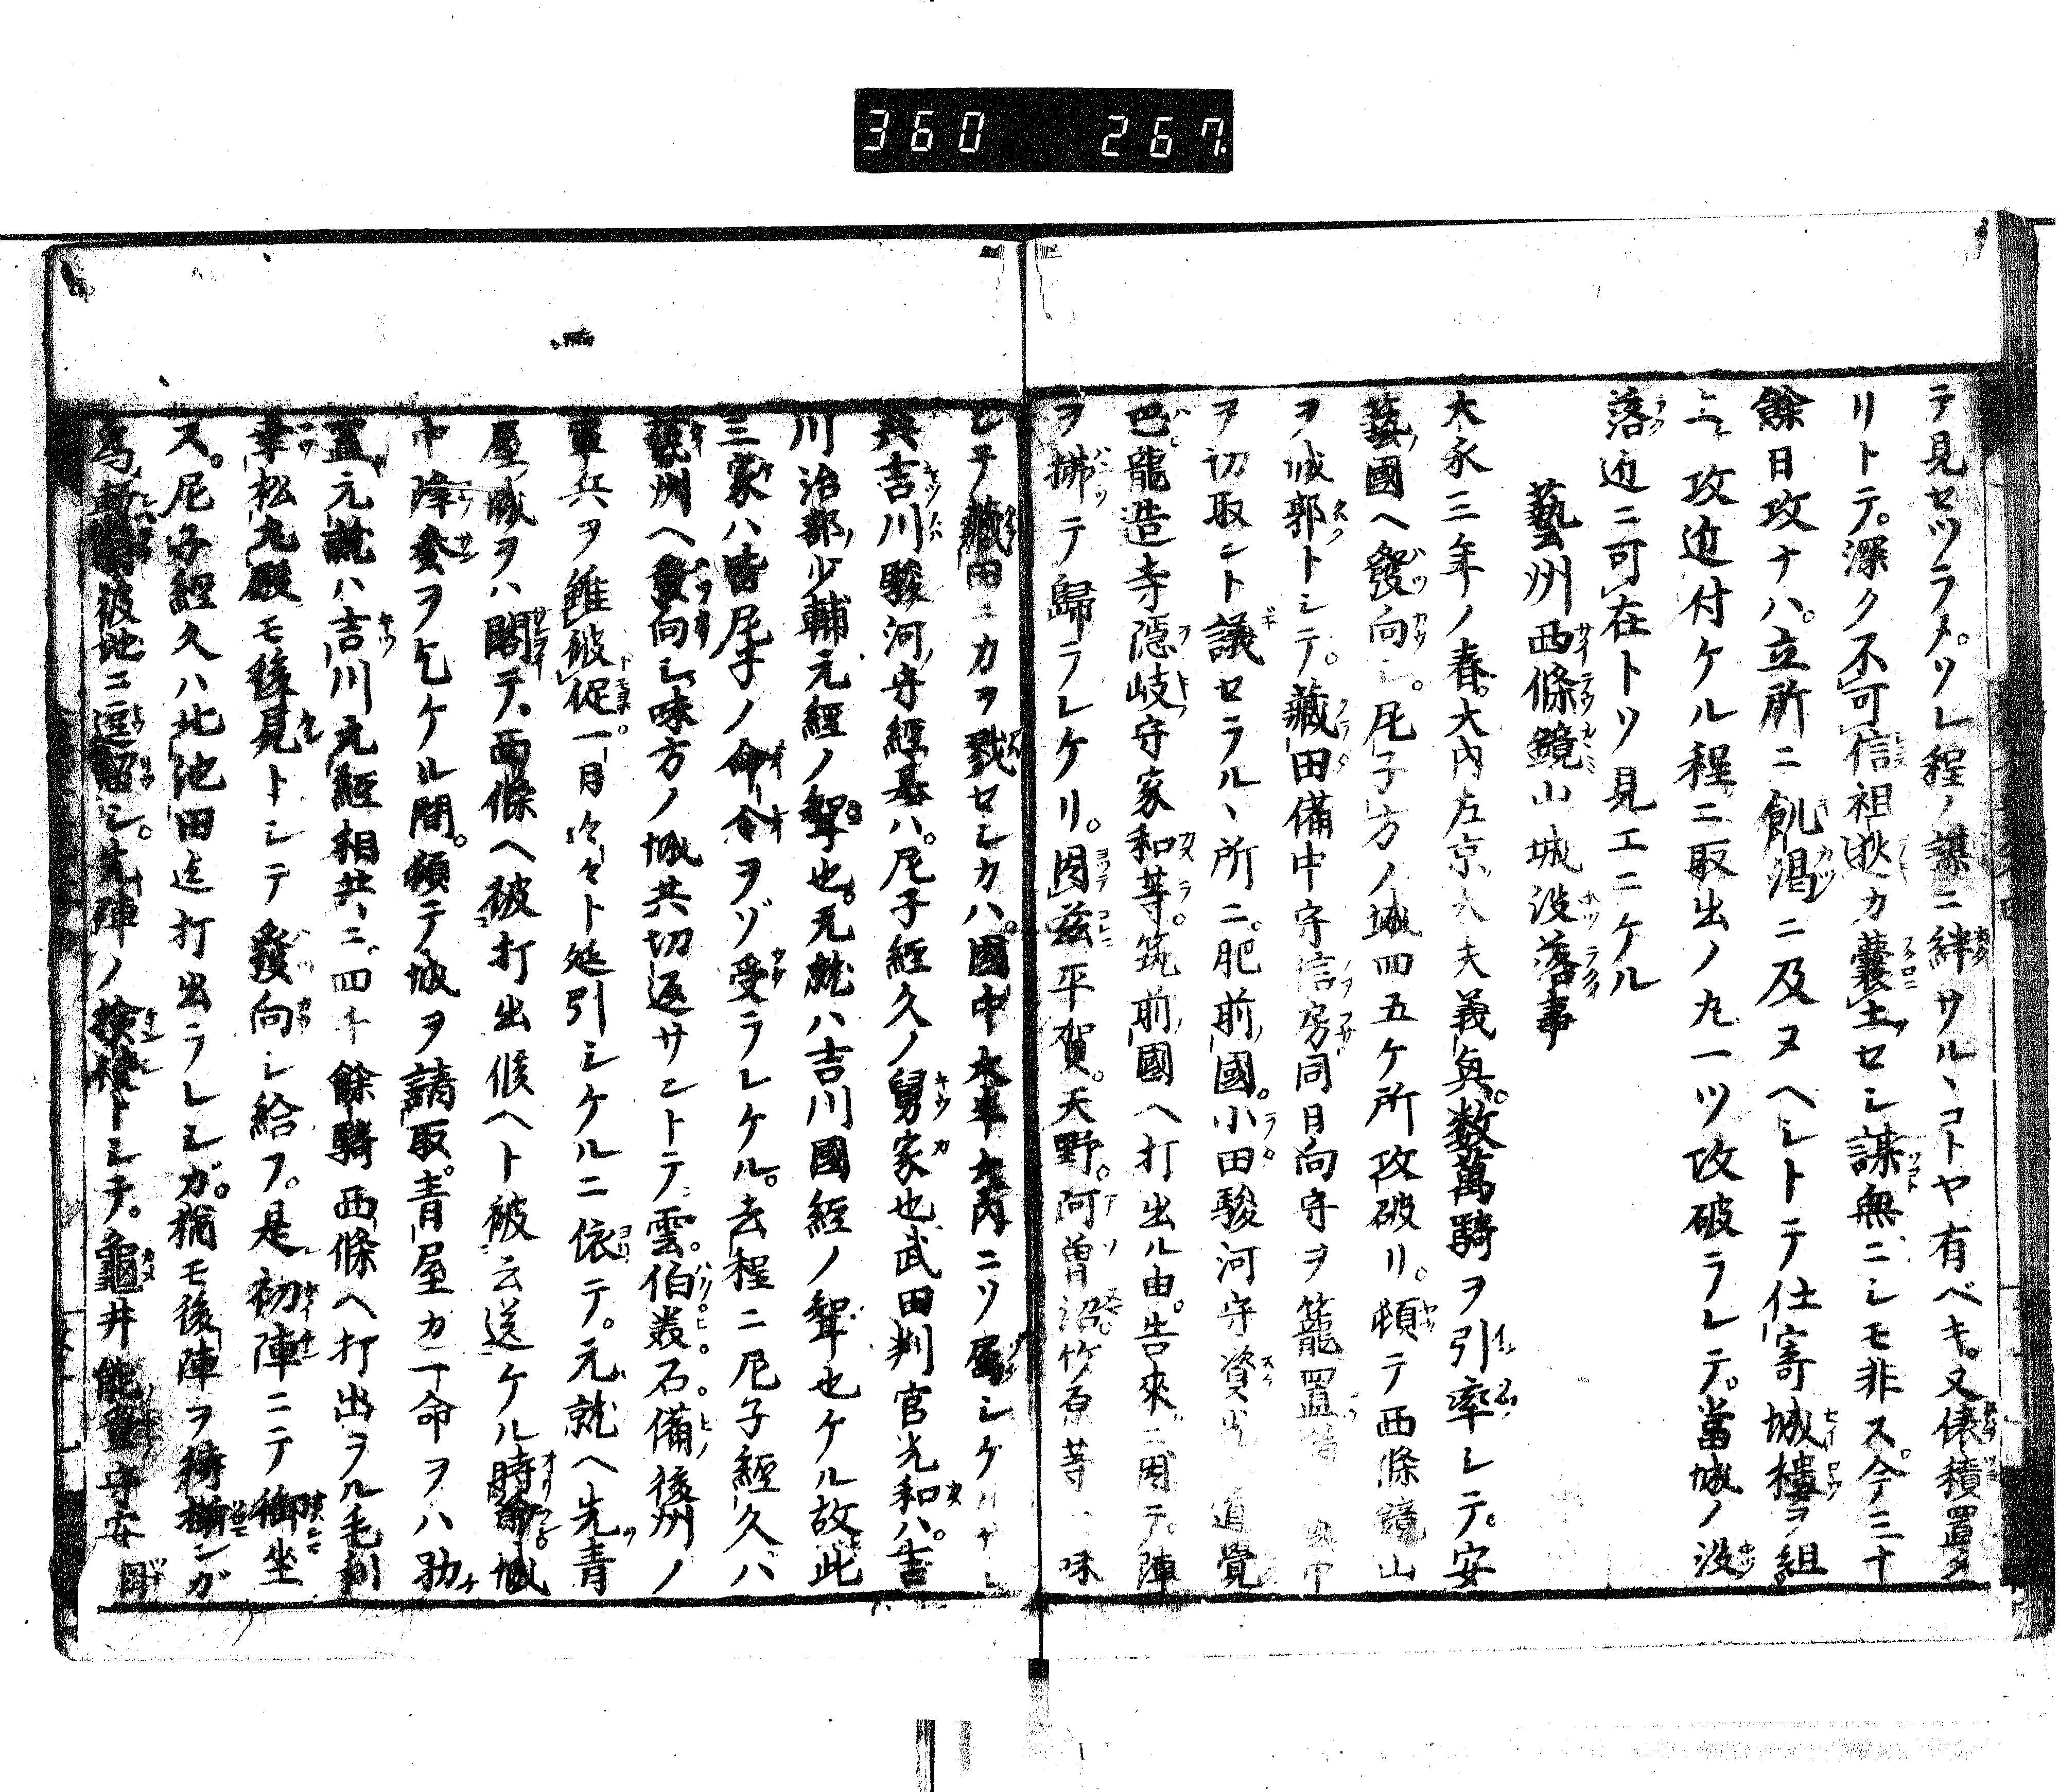 360 267
テ見セツラメ。ソレ程ノ謀ニ絆サル丶コトヤ有ベキ。又俵積置タ
リトテ。深ク不可信祖逖カ嚢土セシ謀無ニシモ非ス。今三十
餘日攻ナハ。立所ニ飢渇ニ及ヌヘシトテ仕寄城樓ヲ組
攻近付ケル程ニ取出ノ丸一ツ攻破ラレテ。當城ノ没
落近ニ可在トソ見エニケル
藝州西條鏡山城没落事
大永三年ノ春。大内左京大夫義興。数萬騎ヲ引率シテ。安
藝國ヘ發向シ。尼子方ノ城四五ケ所攻破リ。頓テ西條鏡山
ヲ城郭トシテ。藏田備中守信房同日向守ヲ籠置 中
ヲ切取ント議セラル丶所ニ。肥前國。小田駿河守資光 道覺
巴。龍造寺隠岐守家和等。筑前國ヘ打出ル由。告來ニ因テ。陣
ヲ拂テ歸ラレケリ。因茲平賀。天野。阿曽沼竹原等一味
シテ藏田ニカヲ戮セシカハ。國中大半大内ニソ屬シケ
吉川駿河守經基ハ。尼子經久ノ舅家也武田判官光和ハ。吉
川治部少輔元經ノ聟也。元就ハ吉川國經ノ聟也ケル故此
三家ハ皆尼子ノ命令ヲゾ受ラレケル。去程ニ尼子經久ハ
藝州ヘ發向シ味方ノ城共切返サントテ雲。伯。石。備後州ノ
軍兵ヲ雖被促一月 々ト延引シケルニ依テ。元就ヘ先青
屋城ヲハ閣テ、西條ヘ被打出候ヘト被云送ケル時 城
中降参ヲ乞ケル間。頓テ城ヲ請取。青屋カ一命ヲハ助
置元就ハ吉川元經相共ニ四千餘騎西條ヘ打出ラル毛利
幸松丸殿モ後見トシテ發向シ給フ。是初陣ニテ御坐
ス。尼子經久ハ北池田迄打出ラレシガ。猶モ後陣ヲ待揃ンガ
為 彼地ニ逗留シ。先陣ノ検使トシテ。龜井能登守安